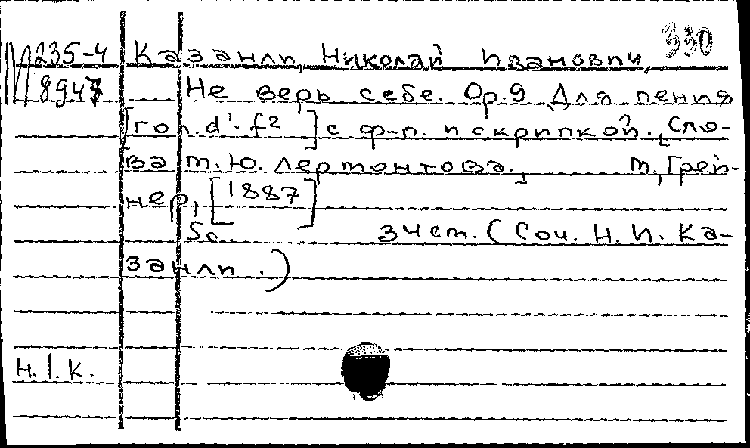 330
М 235-4 Казанли, Николай Иванович,
8947 Не верь себе. Ор. 9. Для пения
[гол. d¹-f²] с ф-п. и скрипкой. Сло-
ва М. Ю. Лермонтова. М., Грей-
нер, [1887]
Sc. 3 ч ст. (Соч. Н. И. Ка-
занли.)
Н. І. К.